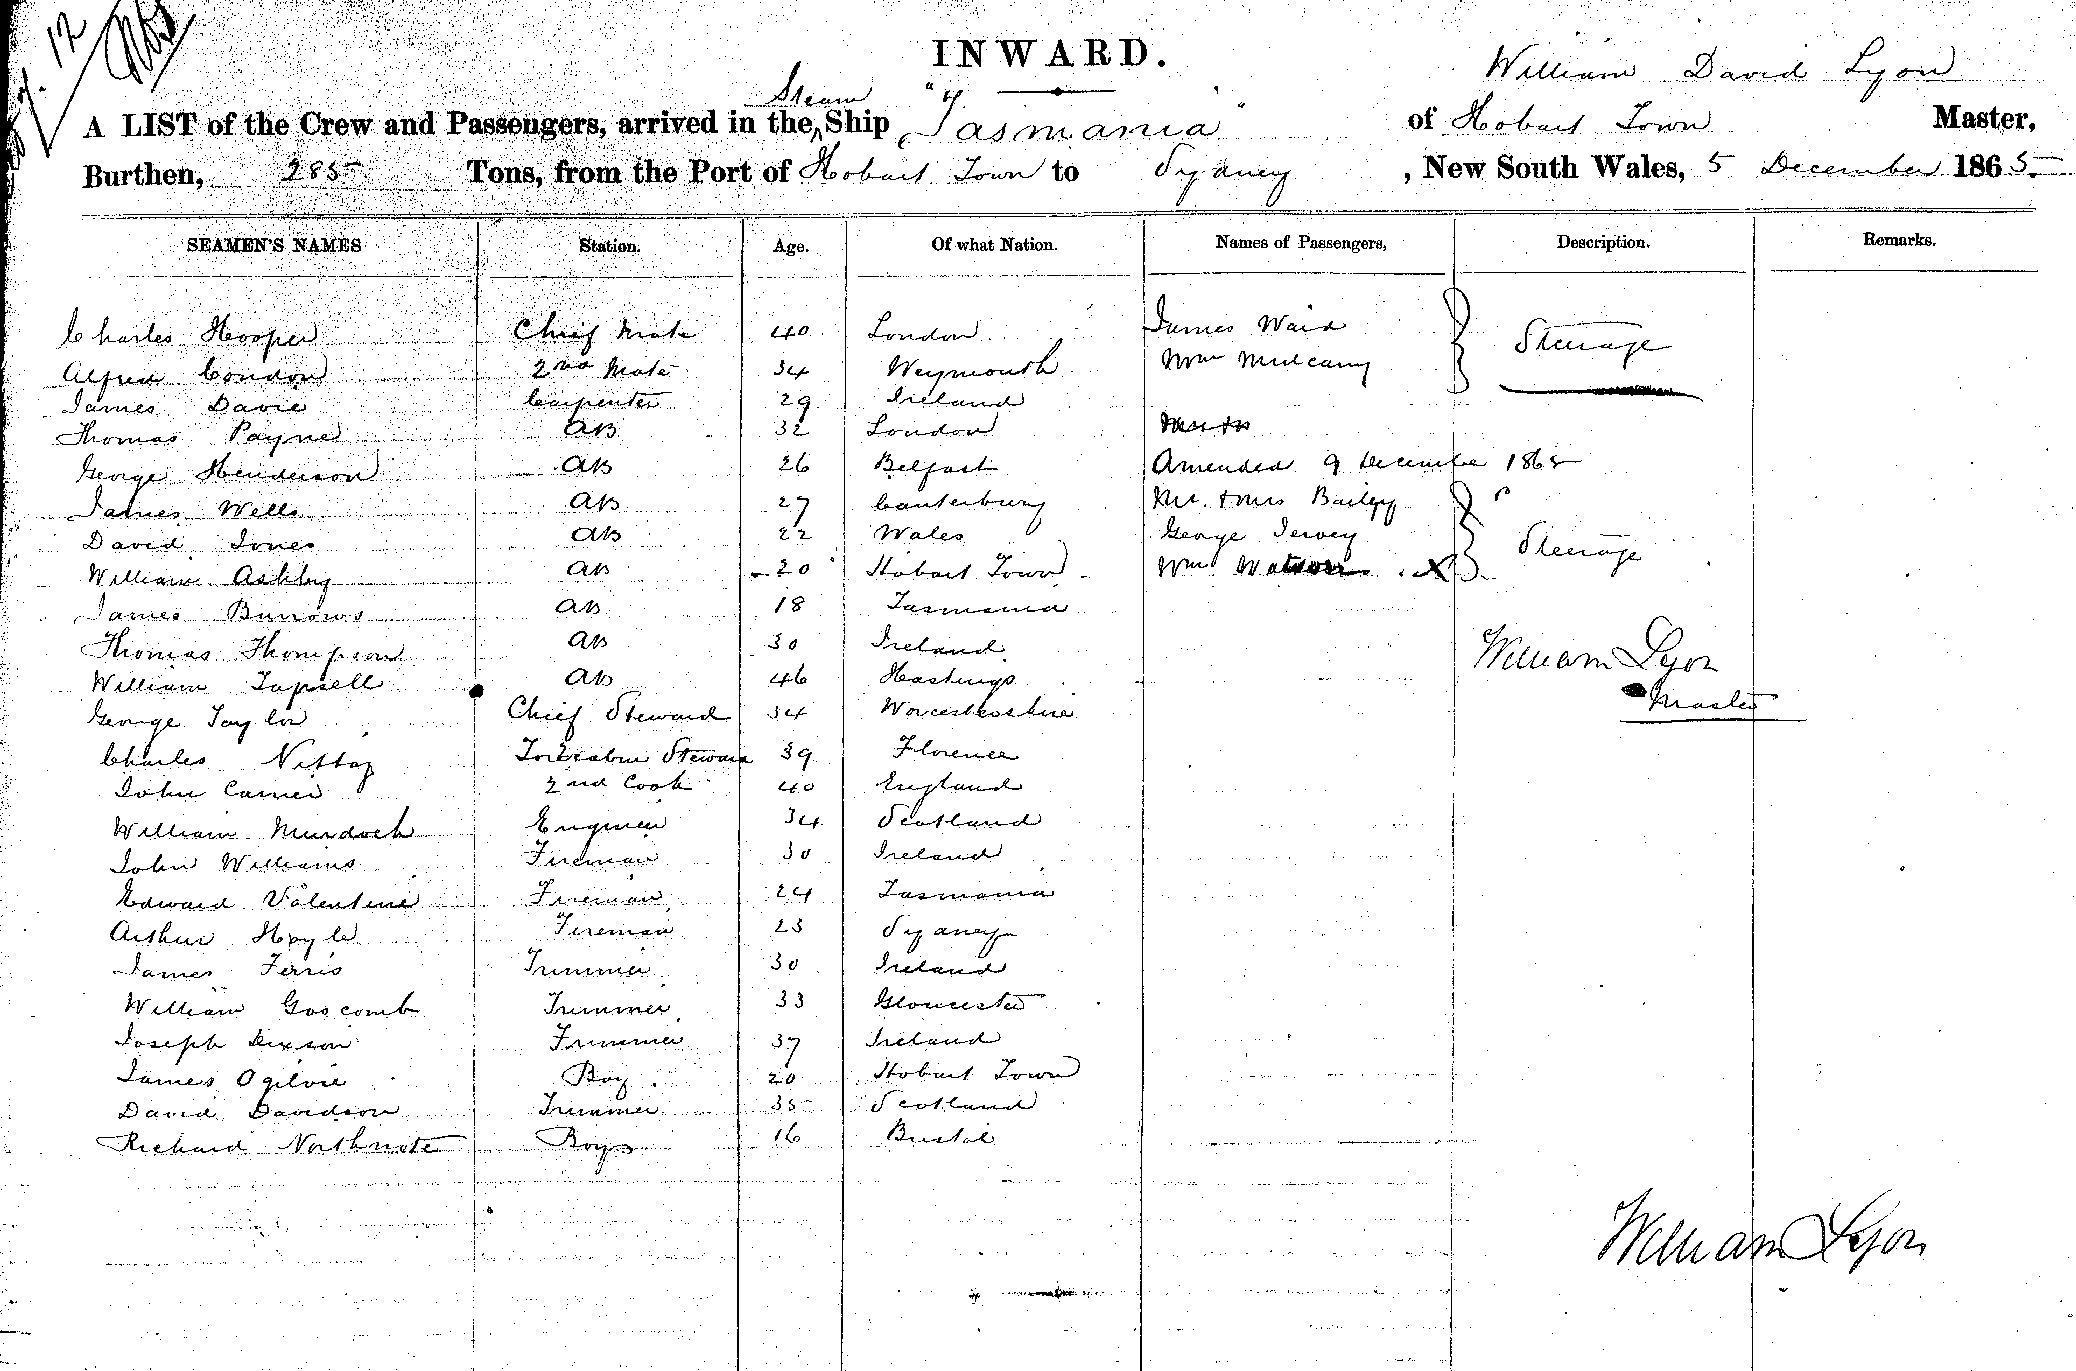 12
INWARD.
William David Lyon
A LIST of the Crew and Passengers, arrived in the Steam Ship "Tasmania" of Hobart Town Master,
Burthen, 285 Tons, from the Port of Hobart Town to Sydney, New South Wales, 5 December 1865.
SEAMEN'S NAMES Station. Age. Of what Nation. Names of Passengers, Description. Remarks.
Charles Hooper Chief Mate 40 London James Ward Steerage
Alfred Condon 2nd Mate 34 Weymouth Wm Mulcamy
James Davie Carpenter 29 Ireland
Thomas Payne AB 32 London
George Henderson AB 26 Belfast Amended 9 December 1865
James Wells AB 27 Canterbury Mr. & Mrs Bailey
David Jones AB 22 Wales George Jervey Steerage
William Ashby AB 20 Hobart Town Wm Watson X
James Burrows AB 18 Tasmania
Thomas Thompson AB 30 Ireland William Lyon
William Tapsell AB 46 Hastings Master
George Taylor Chief Steward 34 Worcestershire
Charles Steward 39 Florence
John Carner 2nd Cook 40 England
William Murdoch Engineer 34 Scotland
John Williams Fireman 30 Ireland
Edward Valentine Fireman 24 Tasmania
Arthur Hoyle Fireman 23 Sydney
James Ferris Trimmer 30 Ireland
William Goscomb Trimmer 33 Gloucester
Joseph Dixson Trimmer 37 Ireland
James Ogilvie Boy 20 Hobart Town
David Davidson Trimmer 35 Scotland
Richard Northnote Boys 16 Bristol
William Lyon